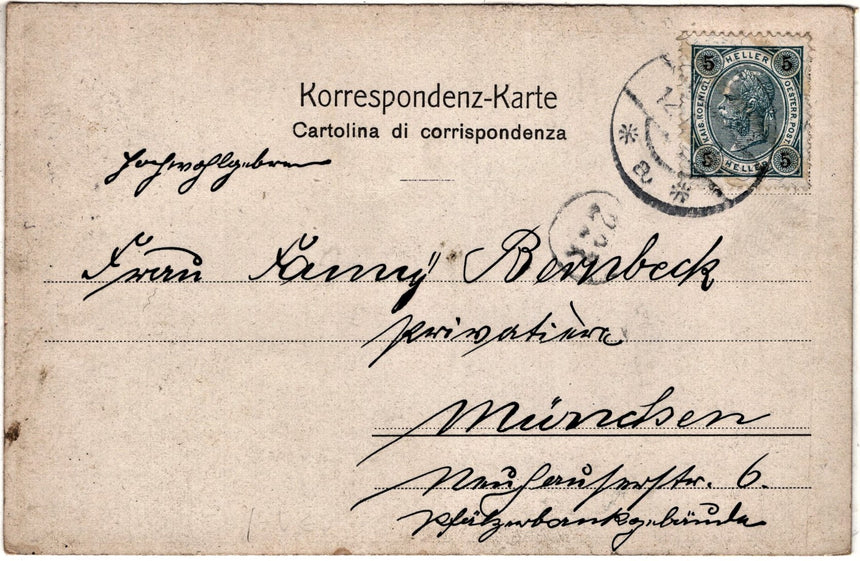 Korrespondenz-Karte
Cartolina di corrispondenza
5 HELLER 5
KAIS. KOENIGL. OESTERR. POST.
5 HELLER 5
* 8 *
Hochwohlgeboren
Frau Fanny Bernbeck
Privatière
München
Neuhauserstr. 6.
Pfälzerbankgebäude